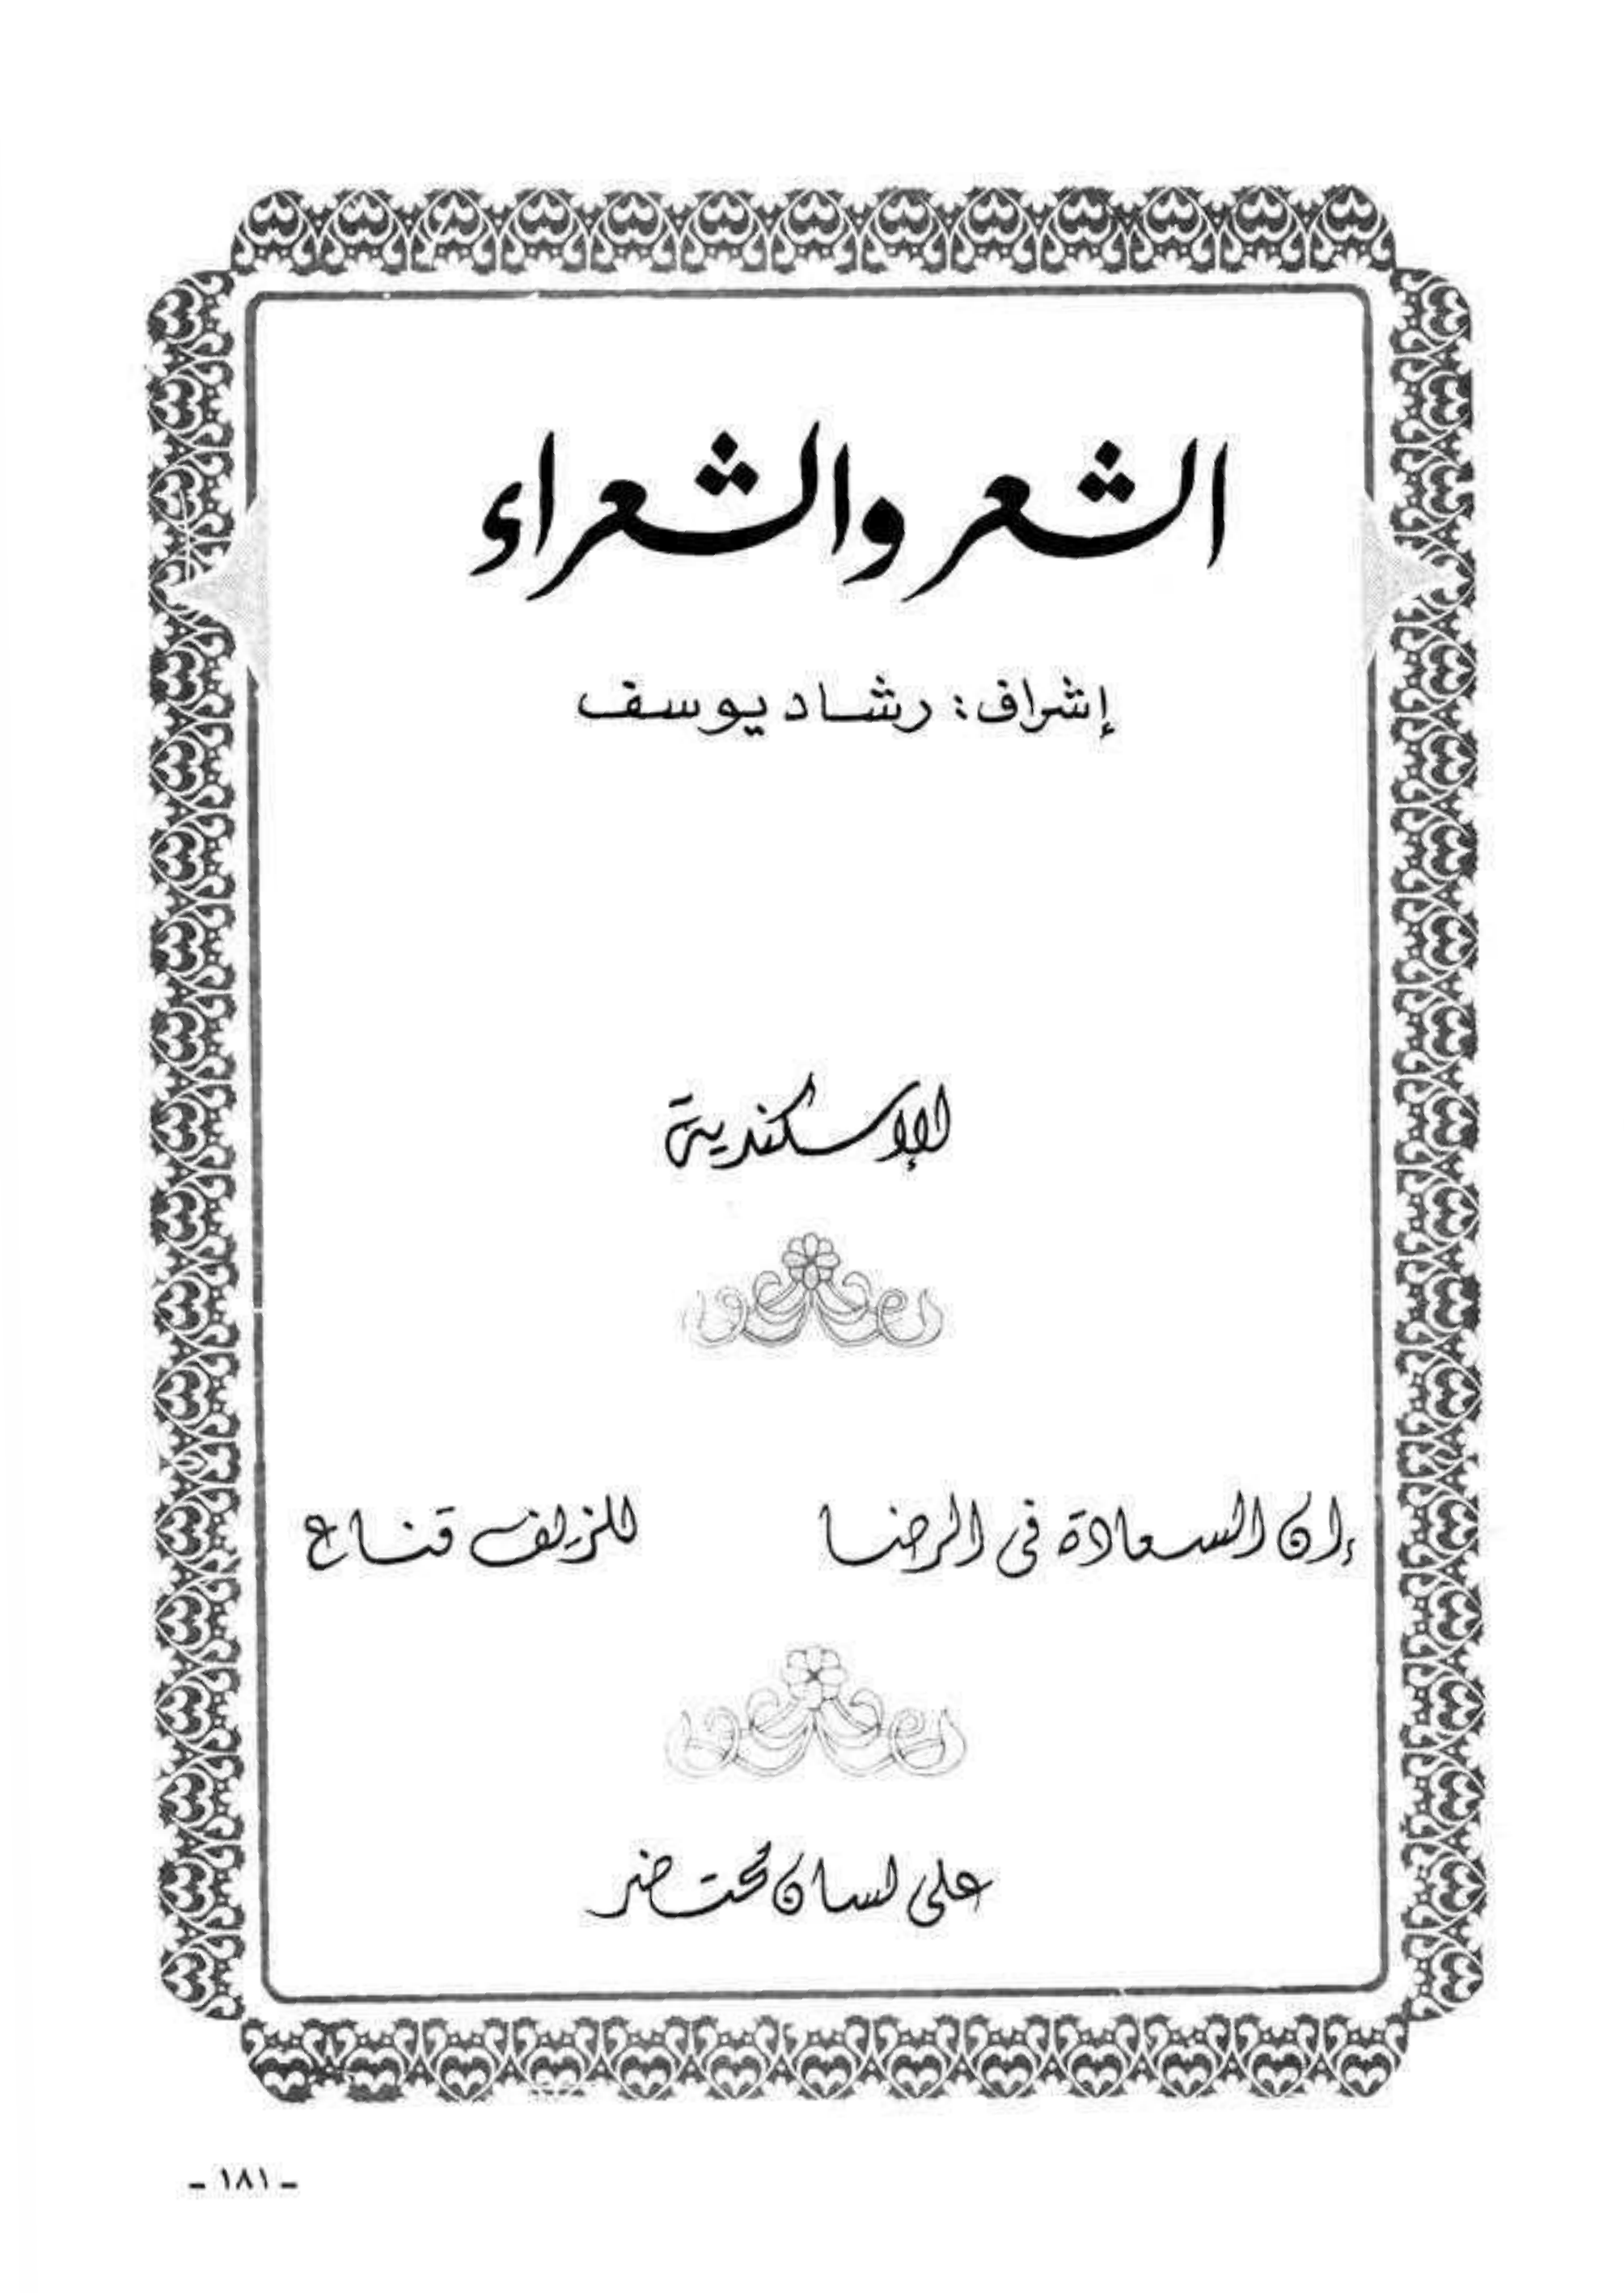 الشعر والشعراء
إشراف: رشاد يوسف
الإسكندرية
إن السعادة في الرضا للزيف قناع
على لسان محتضر
- ١٨١ -